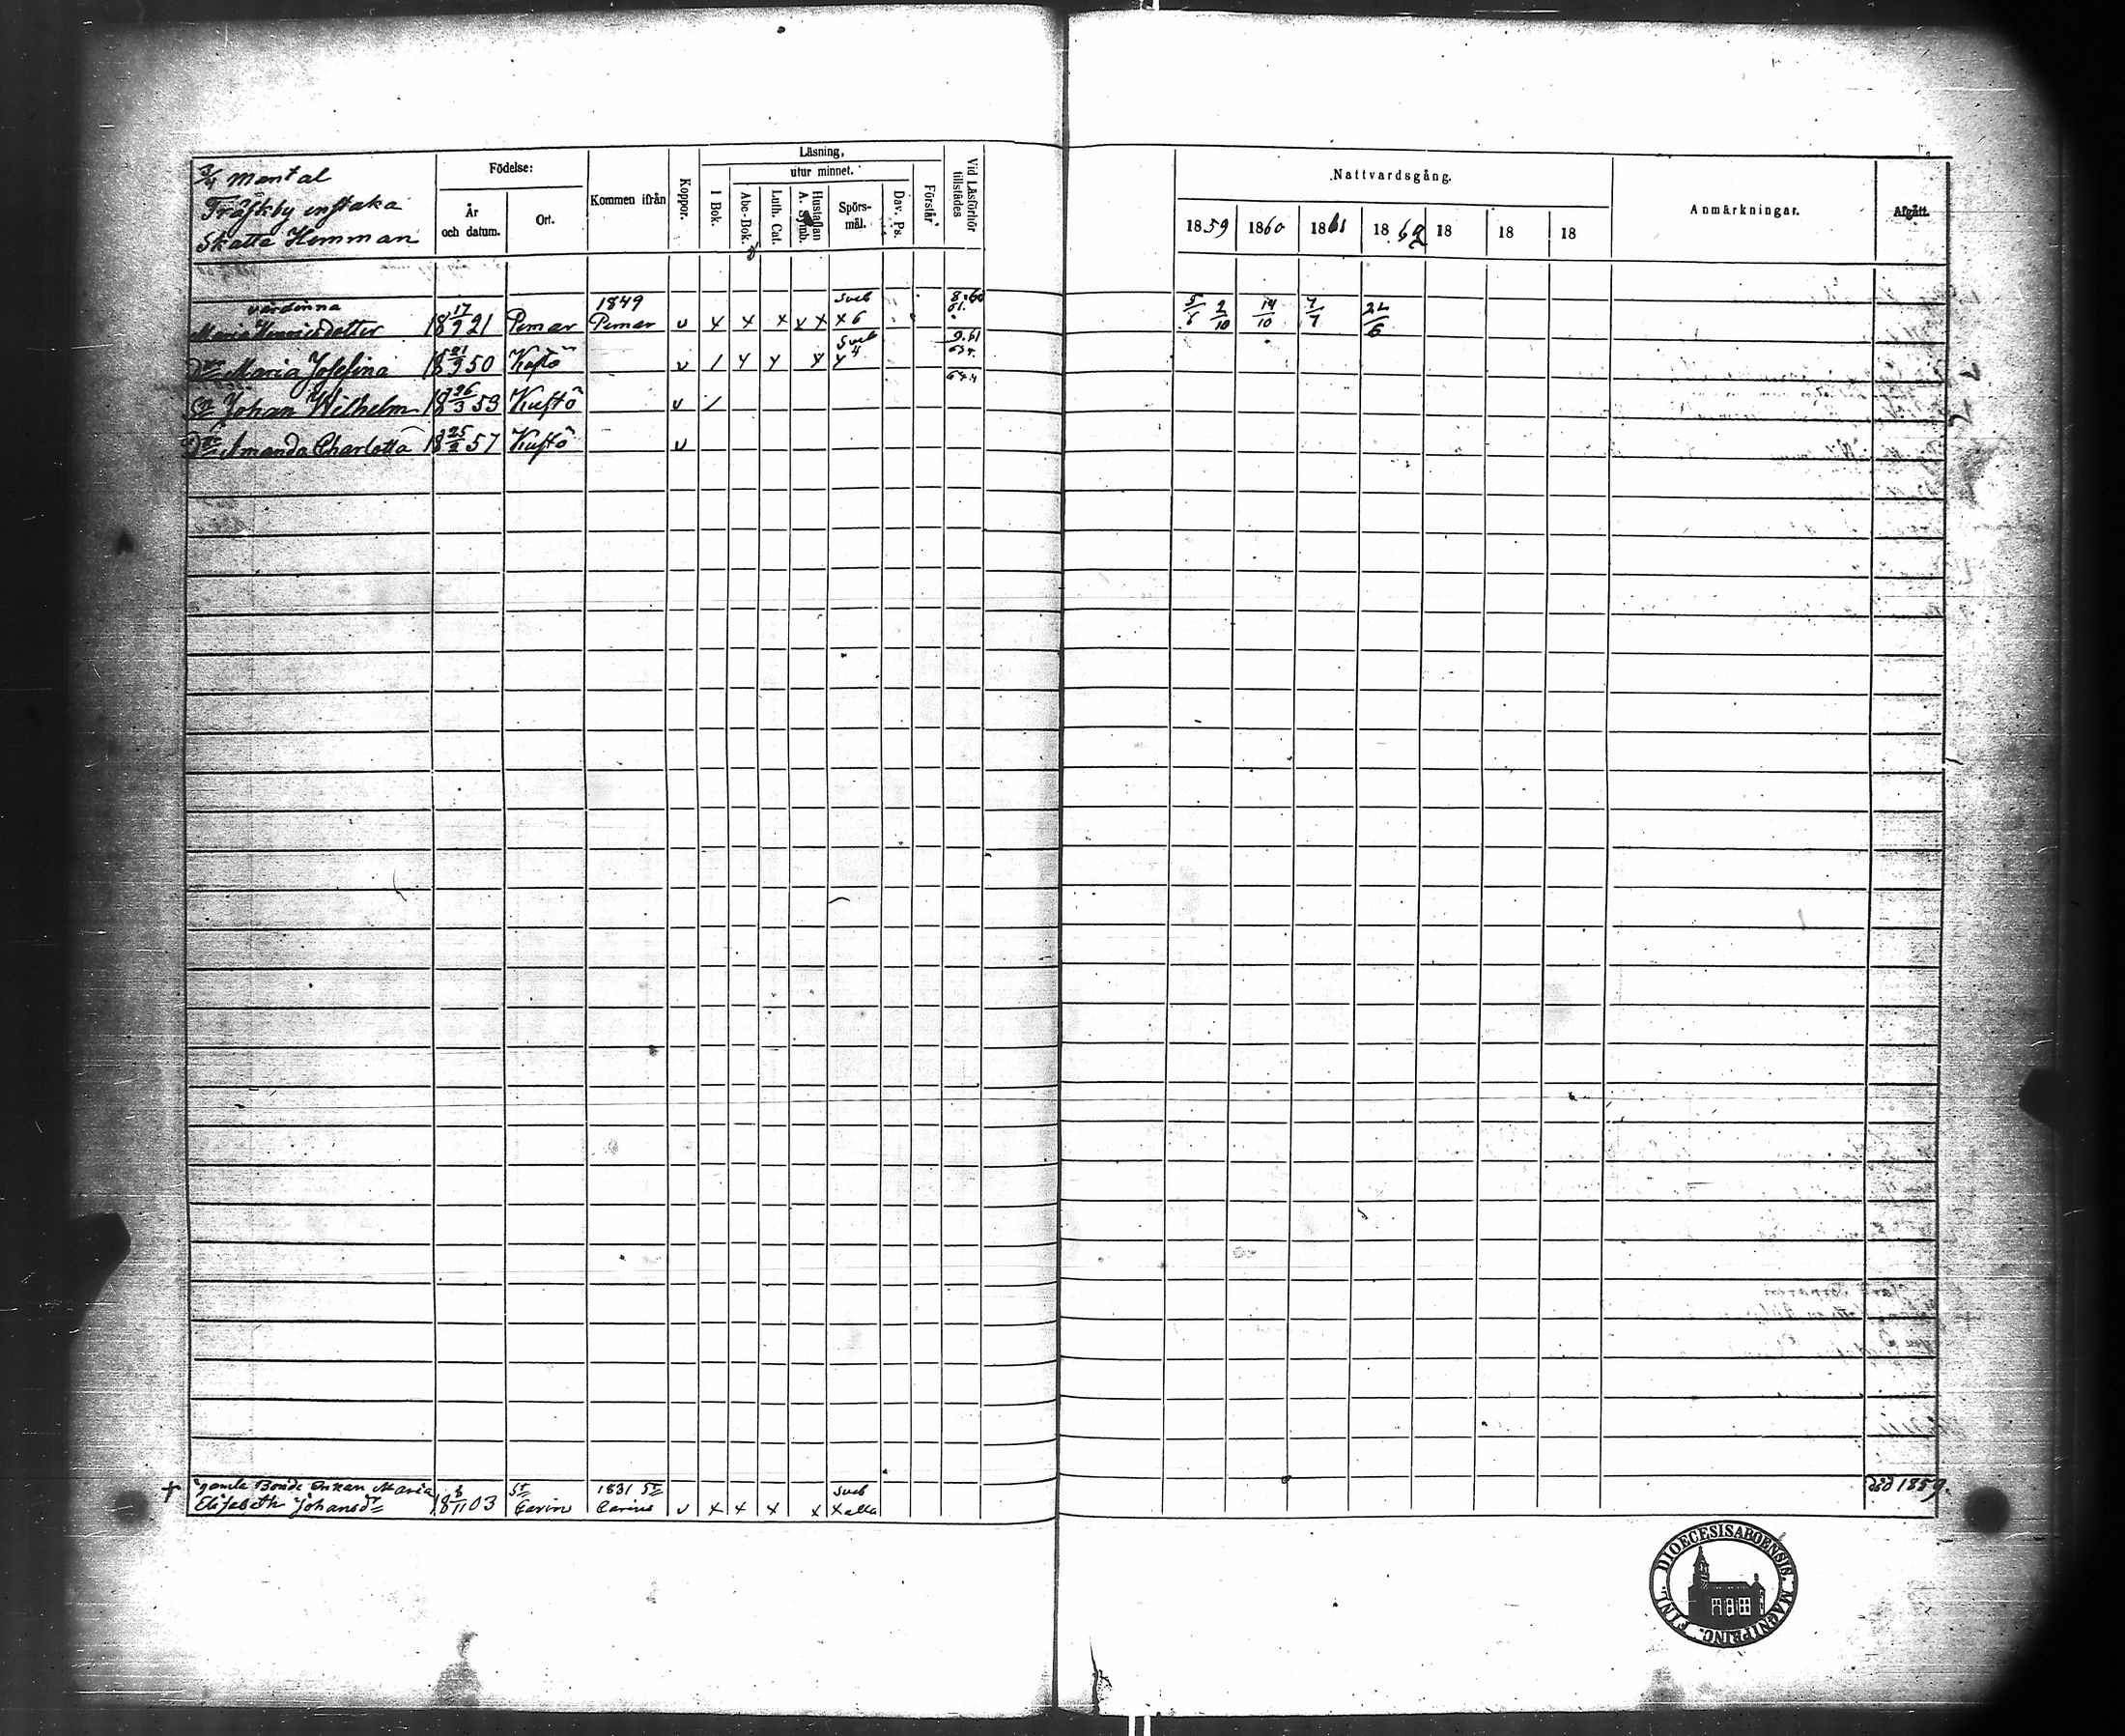 3/4 mantal
Träskby enstaka
Skatte Hemman
Födelse:
År och datum.
Ort.
Kommen ifrån
Koppor.
Läsning,
I Bok.
utur minnet.
Abc-Bok.
Luth. Cat.
Hustaflan A. Symb.
Spörs-mål.
Dav. Ps.
Förstår
Vid Läsförhör tillstädes
Nattvardsgång.
1859 1860 1861 1862 18 18 18
Anmärkningar.
Afgått.
värdinna 1849 Sveb 8.60
Maria Henricsdotter 18 17/9 21 Pemar Pemar v x x x x x x 6 61. 5/6 2/10 14/10 7/7 22/6
Sveb 9.61
Dr Maria Josefina 18 21/9 50 Kustö v / x x x x 4
So Johan Wilhelm 18 26/3 53 Kustö v /
Dr Amanda Charlotta 18 25/2 57 Kustö v
+ gamla Bonde Enkan Maria St 1831 St Sveb död 1859.
Elisabeth Johansdr 18 6/11 03 Carins Carins v x x x x x alla
DIOECESIS ABOENSIC. MAGNI PRINC. FINL.